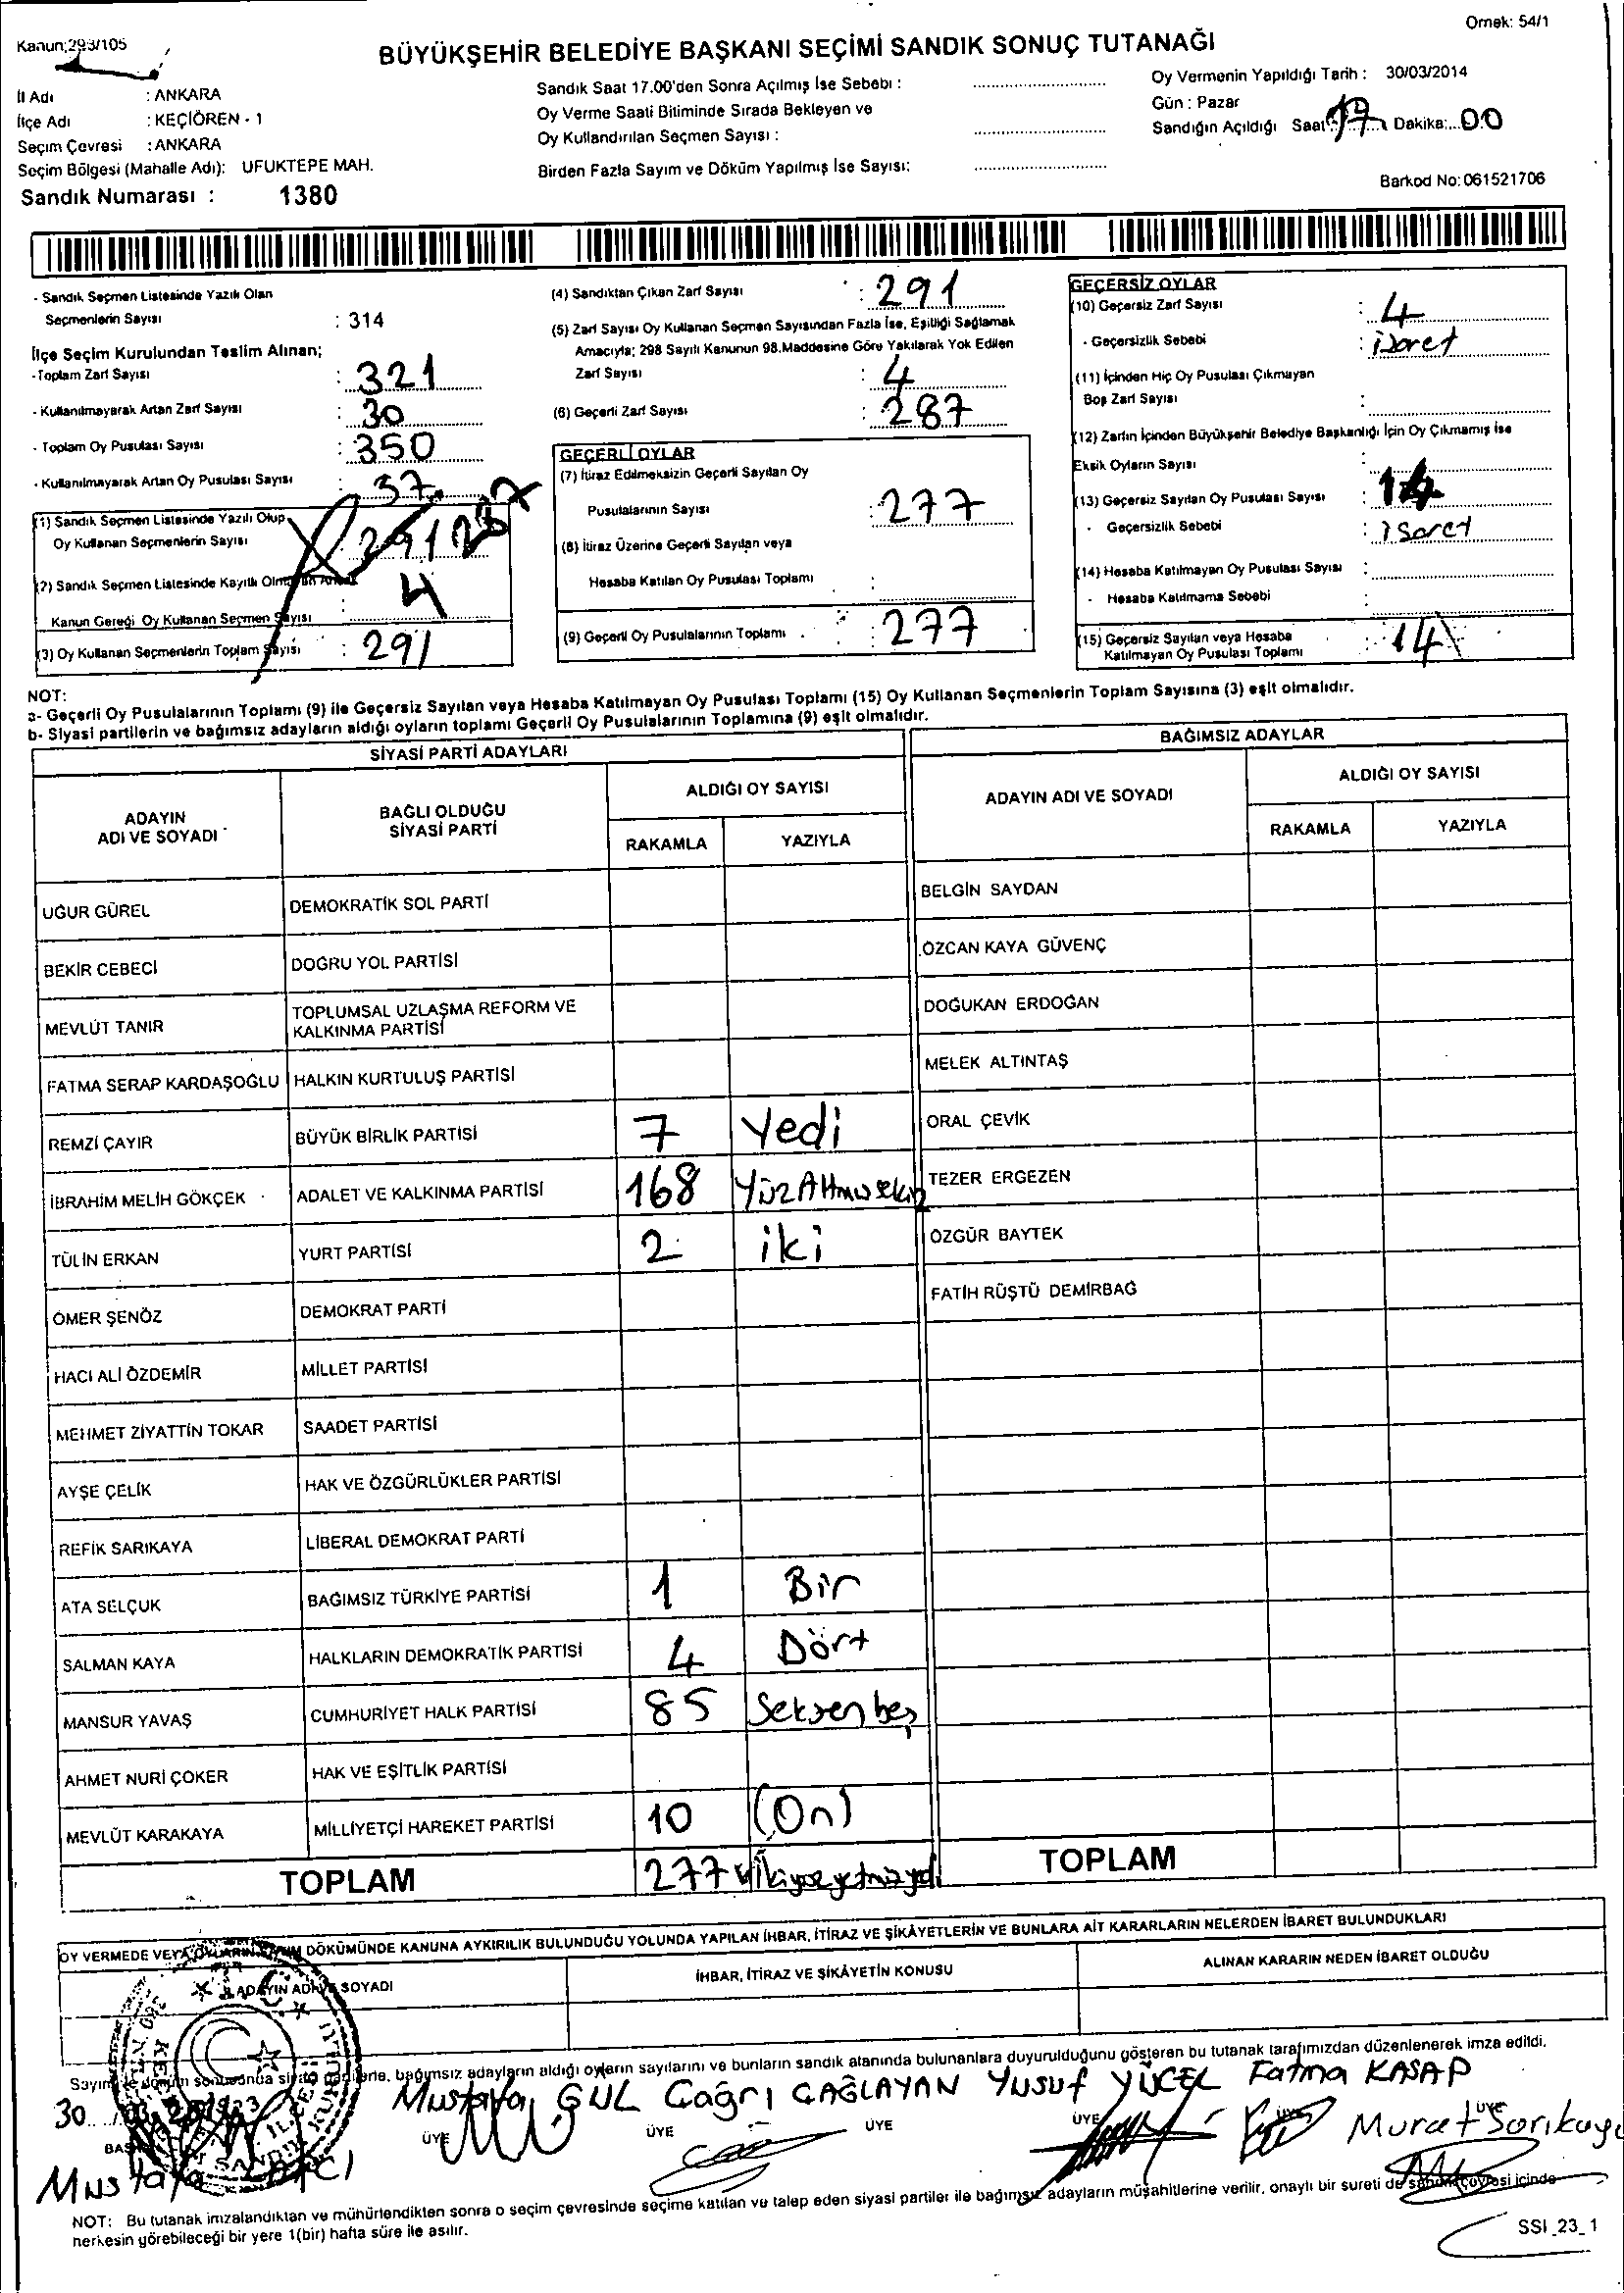 Kanun;293/105
Örnek: 54/1
BÜYÜKŞEHİR BELEDİYE BAŞKANI SEÇİMİ SANDIK SONUÇ TUTANAĞI
İl Adı : ANKARA
İlçe Adı : KEÇİÖREN - 1
Seçim Çevresi : ANKARA
Seçim Bölgesi (Mahalle Adı): UFUKTEPE MAH.
Sandık Numarası : 1380
Sandık Saat 17.00'den Sonra Açılmış İse Sebebi :
Oy Verme Saati Bitiminde Sırada Bekleyen ve
Oy Kullandırılan Seçmen Sayısı :
Birden Fazla Sayım ve Döküm Yapılmış İse Sayısı:
Oy Vermenin Yapıldığı Tarih : 30/03/2014
Gün : Pazar
Sandığın Açıldığı Saat: 17 Dakika:...00
Barkod No: 061521706
- Sandık Seçmen Listesinde Yazılı Olan
Seçmenlerin Sayısı : 314
İlçe Seçim Kurulundan Teslim Alınan;
- Toplam Zarf Sayısı : 321
- Kullanılmayarak Artan Zarf Sayısı : 30
- Toplam Oy Pusulası Sayısı : 350
- Kullanılmayarak Artan Oy Pusulası Sayısı : 37
(1) Sandık Seçmen Listesinde Yazılı Olup
Oy Kullanan Seçmenlerin Sayısı 291 287
(2) Sandık Seçmen Listesinde Kayıtlı Olmayan Ancak
Kanun Gereği Oy Kullanan Seçmen Sayısı : 4
(3) Oy Kullanan Seçmenlerin Toplam Sayısı : 291
(4) Sandıktan Çıkan Zarf Sayısı : 291
(5) Zarf Sayısı Oy Kullanan Seçmen Sayısından Fazla İse, Eşitliği Sağlamak
Amacıyla; 298 Sayılı Kanunun 98.Maddesine Göre Yakılarak Yok Edilen
Zarf Sayısı : 4
(6) Geçerli Zarf Sayısı : 287
GEÇERLİ OYLAR
(7) İtiraz Edilmeksizin Geçerli Sayılan Oy
Pusulalarının Sayısı : 277
(8) İtiraz Üzerine Geçerli Sayılan veya
Hesaba Katılan Oy Pusulası Toplamı :
(9) Geçerli Oy Pusulalarının Toplamı : 277
GEÇERSİZ OYLAR
(10) Geçersiz Zarf Sayısı : 4
- Geçersizlik Sebebi : işaret
(11) İçinden Hiç Oy Pusulası Çıkmayan
Boş Zarf Sayısı :
(12) Zarfın İçinden Büyükşehir Belediye Başkanlığı İçin Oy Çıkmamış ise
Eksik Oyların Sayısı :
(13) Geçersiz Sayılan Oy Pusulası Sayısı : 14
- Geçersizlik Sebebi : işaret
(14) Hesaba Katılmayan Oy Pusulası Sayısı :
- Hesaba Katılmama Sebebi :
(15) Geçersiz Sayılan veya Hesaba
Katılmayan Oy Pusulası Toplamı : 14
NOT:
a- Geçerli Oy Pusulalarının Toplamı (9) ile Geçersiz Sayılan veya Hesaba Katılmayan Oy Pusulası Toplamı (15) Oy Kullanan Seçmenlerin Toplam Sayısına (3) eşit olmalıdır.
b- Siyasi partilerin ve bağımsız adayların aldığı oyların toplamı Geçerli Oy Pusulalarının Toplamına (9) eşit olmalıdır.
SİYASİ PARTİ ADAYLARI
BAĞIMSIZ ADAYLAR
ADAYIN ADI VE SOYADI
BAĞLI OLDUĞU SİYASİ PARTİ
ALDIĞI OY SAYISI
RAKAMLA YAZIYLA
ADAYIN ADI VE SOYADI
ALDIĞI OY SAYISI
RAKAMLA YAZIYLA
UĞUR GÜREL DEMOKRATİK SOL PARTİ BELGİN SAYDAN
BEKİR CEBECİ DOĞRU YOL PARTİSİ ÖZCAN KAYA GÜVENÇ
MEVLÜT TANIR TOPLUMSAL UZLAŞMA REFORM VE KALKINMA PARTİSİ DOĞUKAN ERDOĞAN
FATMA SERAP KARDAŞOĞLU HALKIN KURTULUŞ PARTİSİ MELEK ALTINTAŞ
REMZİ ÇAYIR BÜYÜK BİRLİK PARTİSİ 7 Yedi ORAL ÇEVİK
İBRAHİM MELİH GÖKÇEK ADALET VE KALKINMA PARTİSİ 168 YüzAltmışsekiz TEZER ERGEZEN
TÜLİN ERKAN YURT PARTİSİ 2 iki ÖZGÜR BAYTEK
ÖMER ŞENÖZ DEMOKRAT PARTİ FATİH RÜŞTÜ DEMİRBAĞ
HACI ALİ ÖZDEMİR MİLLET PARTİSİ
MEHMET ZİYATTİN TOKAR SAADET PARTİSİ
AYŞE ÇELİK HAK VE ÖZGÜRLÜKLER PARTİSİ
REFİK SARIKAYA LİBERAL DEMOKRAT PARTİ
ATA SELÇUK BAĞIMSIZ TÜRKİYE PARTİSİ 1 Bir
SALMAN KAYA HALKLARIN DEMOKRATİK PARTİSİ 4 Dört
MANSUR YAVAŞ CUMHURİYET HALK PARTİSİ 85 Seksen beş
AHMET NURİ ÇOKER HAK VE EŞİTLİK PARTİSİ
MEVLÜT KARAKAYA MİLLİYETÇİ HAREKET PARTİSİ 10 (On)
TOPLAM 277 ikiyüzyetmişyedi TOPLAM
OY VERMEDE VEYA OYLARIN SAYIM DÖKÜMÜNDE KANUNA AYKIRILIK BULUNDUĞU YOLUNDA YAPILAN İHBAR, İTİRAZ VE ŞİKÂYETLERİN VE BUNLARA AİT KARARLARIN NELERDEN İBARET BULUNDUKLARI
ADAYIN ADI VE SOYADI
İHBAR, İTİRAZ VE ŞİKÂYETİN KONUSU
ALINAN KARARIN NEDEN İBARET OLDUĞU
Sayım ve döküm sonucunda siyasi partilerle, bağımsız adayların aldığı oyların sayılarını ve bunların sandık alanında bulunanlara duyurulduğunu gösteren bu tutanak tarafımızdan düzenlenerek imza edildi.
30
Mustafa GÜL Çağrı ÇAĞLAYAN Yusuf YÜCEL Fatma KASAP
ÜYE ÜYE ÜYE ÜYE ÜYE
Murat Sarıkaya
Mustafa
NOT: Bu tutanak imzalandıktan ve mühürlendikten sonra o seçim çevresinde seçime katılan ve talep eden siyasi partiler ile bağımsız adayların müşahitlerine verilir, onaylı bir sureti de sandık çevresi içinde
herkesin görebileceği bir yere 1(bir) hafta süre ile asılır.
SSI_23_1